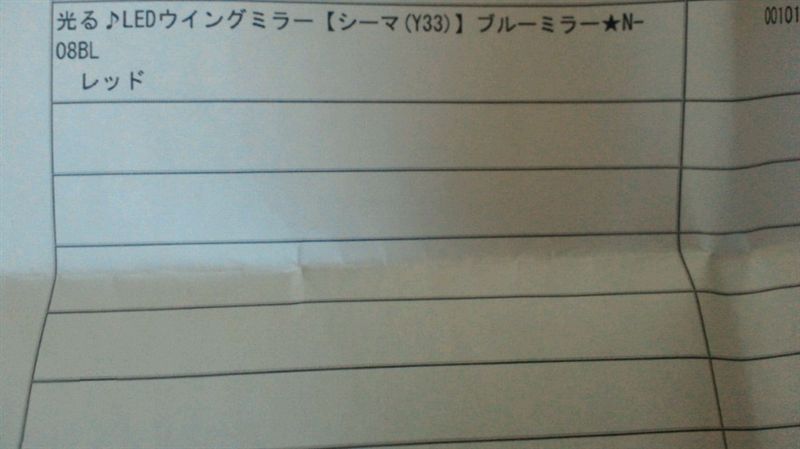 光る♪LEDウイングミラー【シーマ(Y33)】ブルーミラー★N-
08BL
レッド
00101